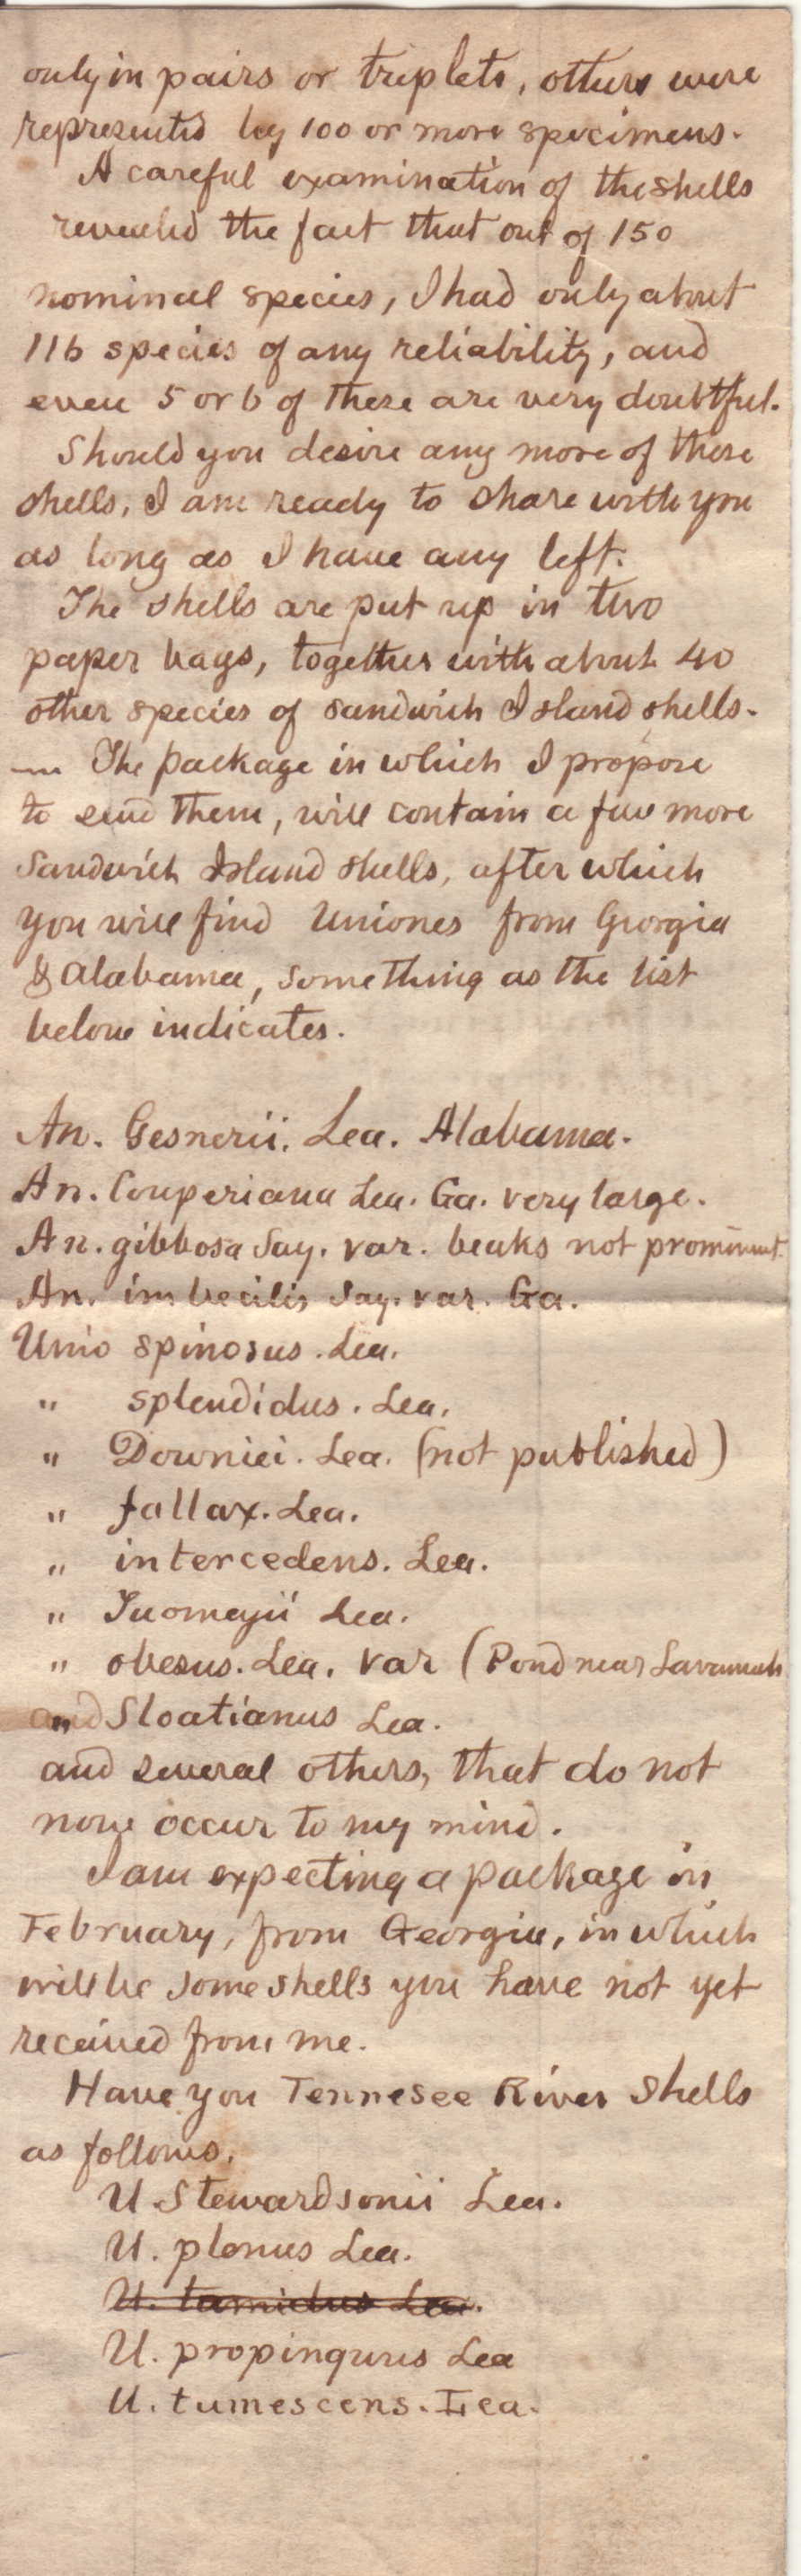 only in pairs or triplets, others were
represented by 100 or more specimens.
A careful examination of the shells
revealed the fact that out of 150
nominal species, I had only about
116 species of any reliability, and
even 5 or 6 of these are very doubtful.
Should you desire any more of these
shells, I am ready to share with you
as long as I have any left.
The shells are put up in two
paper bags, together with about 40
other species of Sandwich Island shells.
— The package in which I propose
to send them, will contain a few more
Sandwich Island shells, after which
you will find Uniones from Georgia
& Alabama, something as the list
below indicates.
An. Gesnerii. Lea. Alabama.
An. Couperiana Lea. Ga. very large.
An. gibbosa Say. var. beaks not prominent.
An. imbecilis Say. var. Ga.
Unio spinosus. Lea.
" splendidus. Lea.
" Downiei. Lea. (not published)
" fallax. Lea.
" intercedens. Lea.
" Tuomeyii Lea.
" obesus. Lea. var (Pond near Savannah
and " Sloatianus Lea.
and several others, that do not
now occur to my mind.
I am expecting a package in
February, from Georgia, in which
will be some shells you have not yet
received from me.
Have you Tennesee River Shells
as follows.
U Stewardsonii Lea.
U. plenus Lea.
U. Lea.
U. propinquus Lea
U. tumescens. Lea.